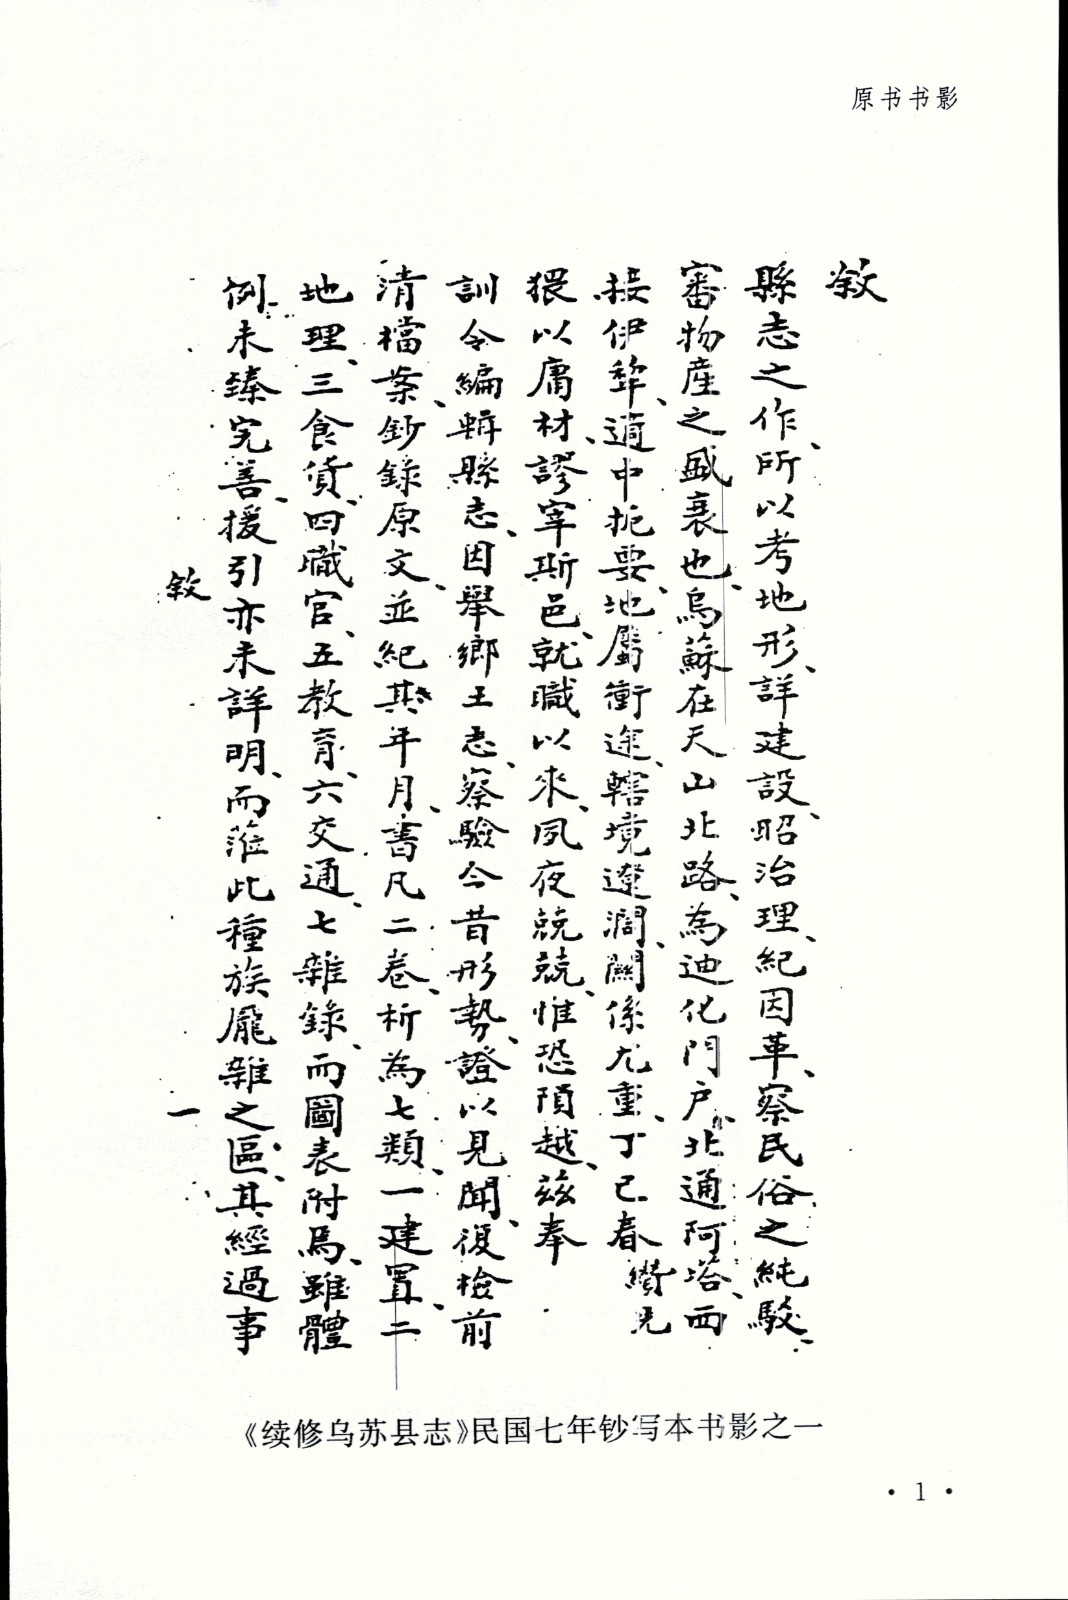 原书书影
敘
縣志之作、所以考地形、詳建設、昭治理、紀因革、察民俗之純駁、
審物產之盛衰也、烏蘇在天山北路、為迪化門户、北通阿塔、西
接伊犂、適中扼要、地屬衝途、轄境遼濶、關係尤重、丁巳春 纘兄
猥以庸材、謬宰斯邑、就職以來、夙夜兢兢、惟恐隕越、茲奉
訓令編輯縣志、因舉鄉土志、察驗今昔形勢、證以見聞、復檢前
清檔案、鈔錄原文、並紀其年月、書凡二卷、析為七類、一建置、二
地理、三食貨、四職官、五教育、六交通、七雜錄、而圖表附焉、雖體
例未臻完善、援引亦未詳明、而蒞此種族龐雜之區、其經過事
敘
一
《续修乌苏县志》民国七年钞写本书影之一
· 1 ·